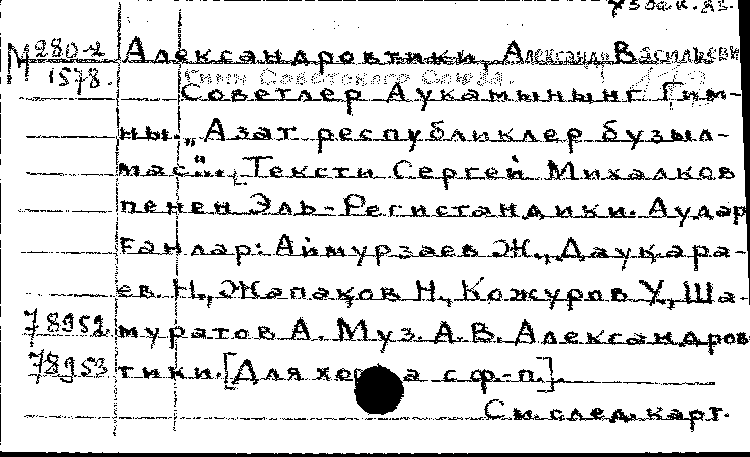 М 280-2
1578.
Александровтики, Александр Васильевич
Гимн Советского Союза.
Советлер Аукамынынг Гим-
ны. „Азат республиклер бузыл-
мас“... Тексти Сергей Михалков
пенен Эль-Регистандики. Аудар
ғанлар: Аймурзаев Ж., Даукара-
ев Н., Жапақов Н., Кожуров У., Ша-
78952 муратов А. Муз. А.В. Александров-
78953 тики. [Для хора с ф.-п.].
См. след. карт.